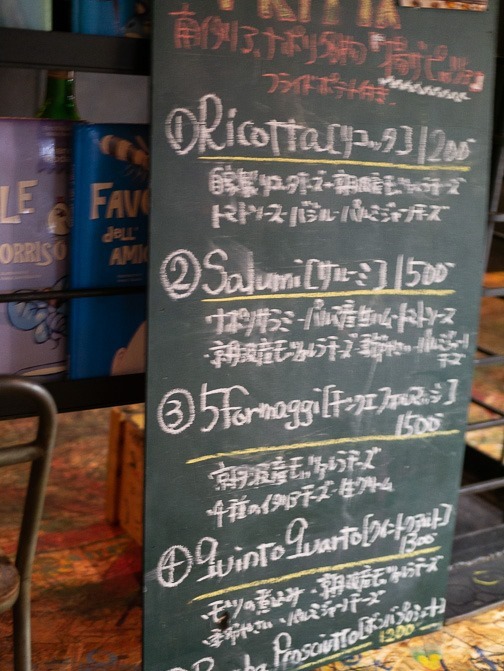 FRITTA
南イタリア、ナポリ名物の"揚げピッツァ"
フライドポテト付き
① Ricotta[リコッタ] 1200-
自家製リコッタチーズ・朝波産モッツァレラチーズ
トマトソース・バジル・パルミジャーノチーズ
② Salumi[サルーミ] 1500-
・ナポリサラミ・パルマ産生ハム・トマトソース
・モッツァレラチーズ・パルミジャーノ
チーズ
③ 5Formaggi[チンクエフォルマッジ]
1500-
モッツァレラチーズ
・4種のイタリアチーズ・生クリーム
④ Quinto Quarto[クイントクアルト]
1300-
・モツの煮込み・モッツァレラチーズ
・パルミジャーノチーズ
Prosciutto
1200-
LE
ORRISO
FAVO
dell'
AMIC